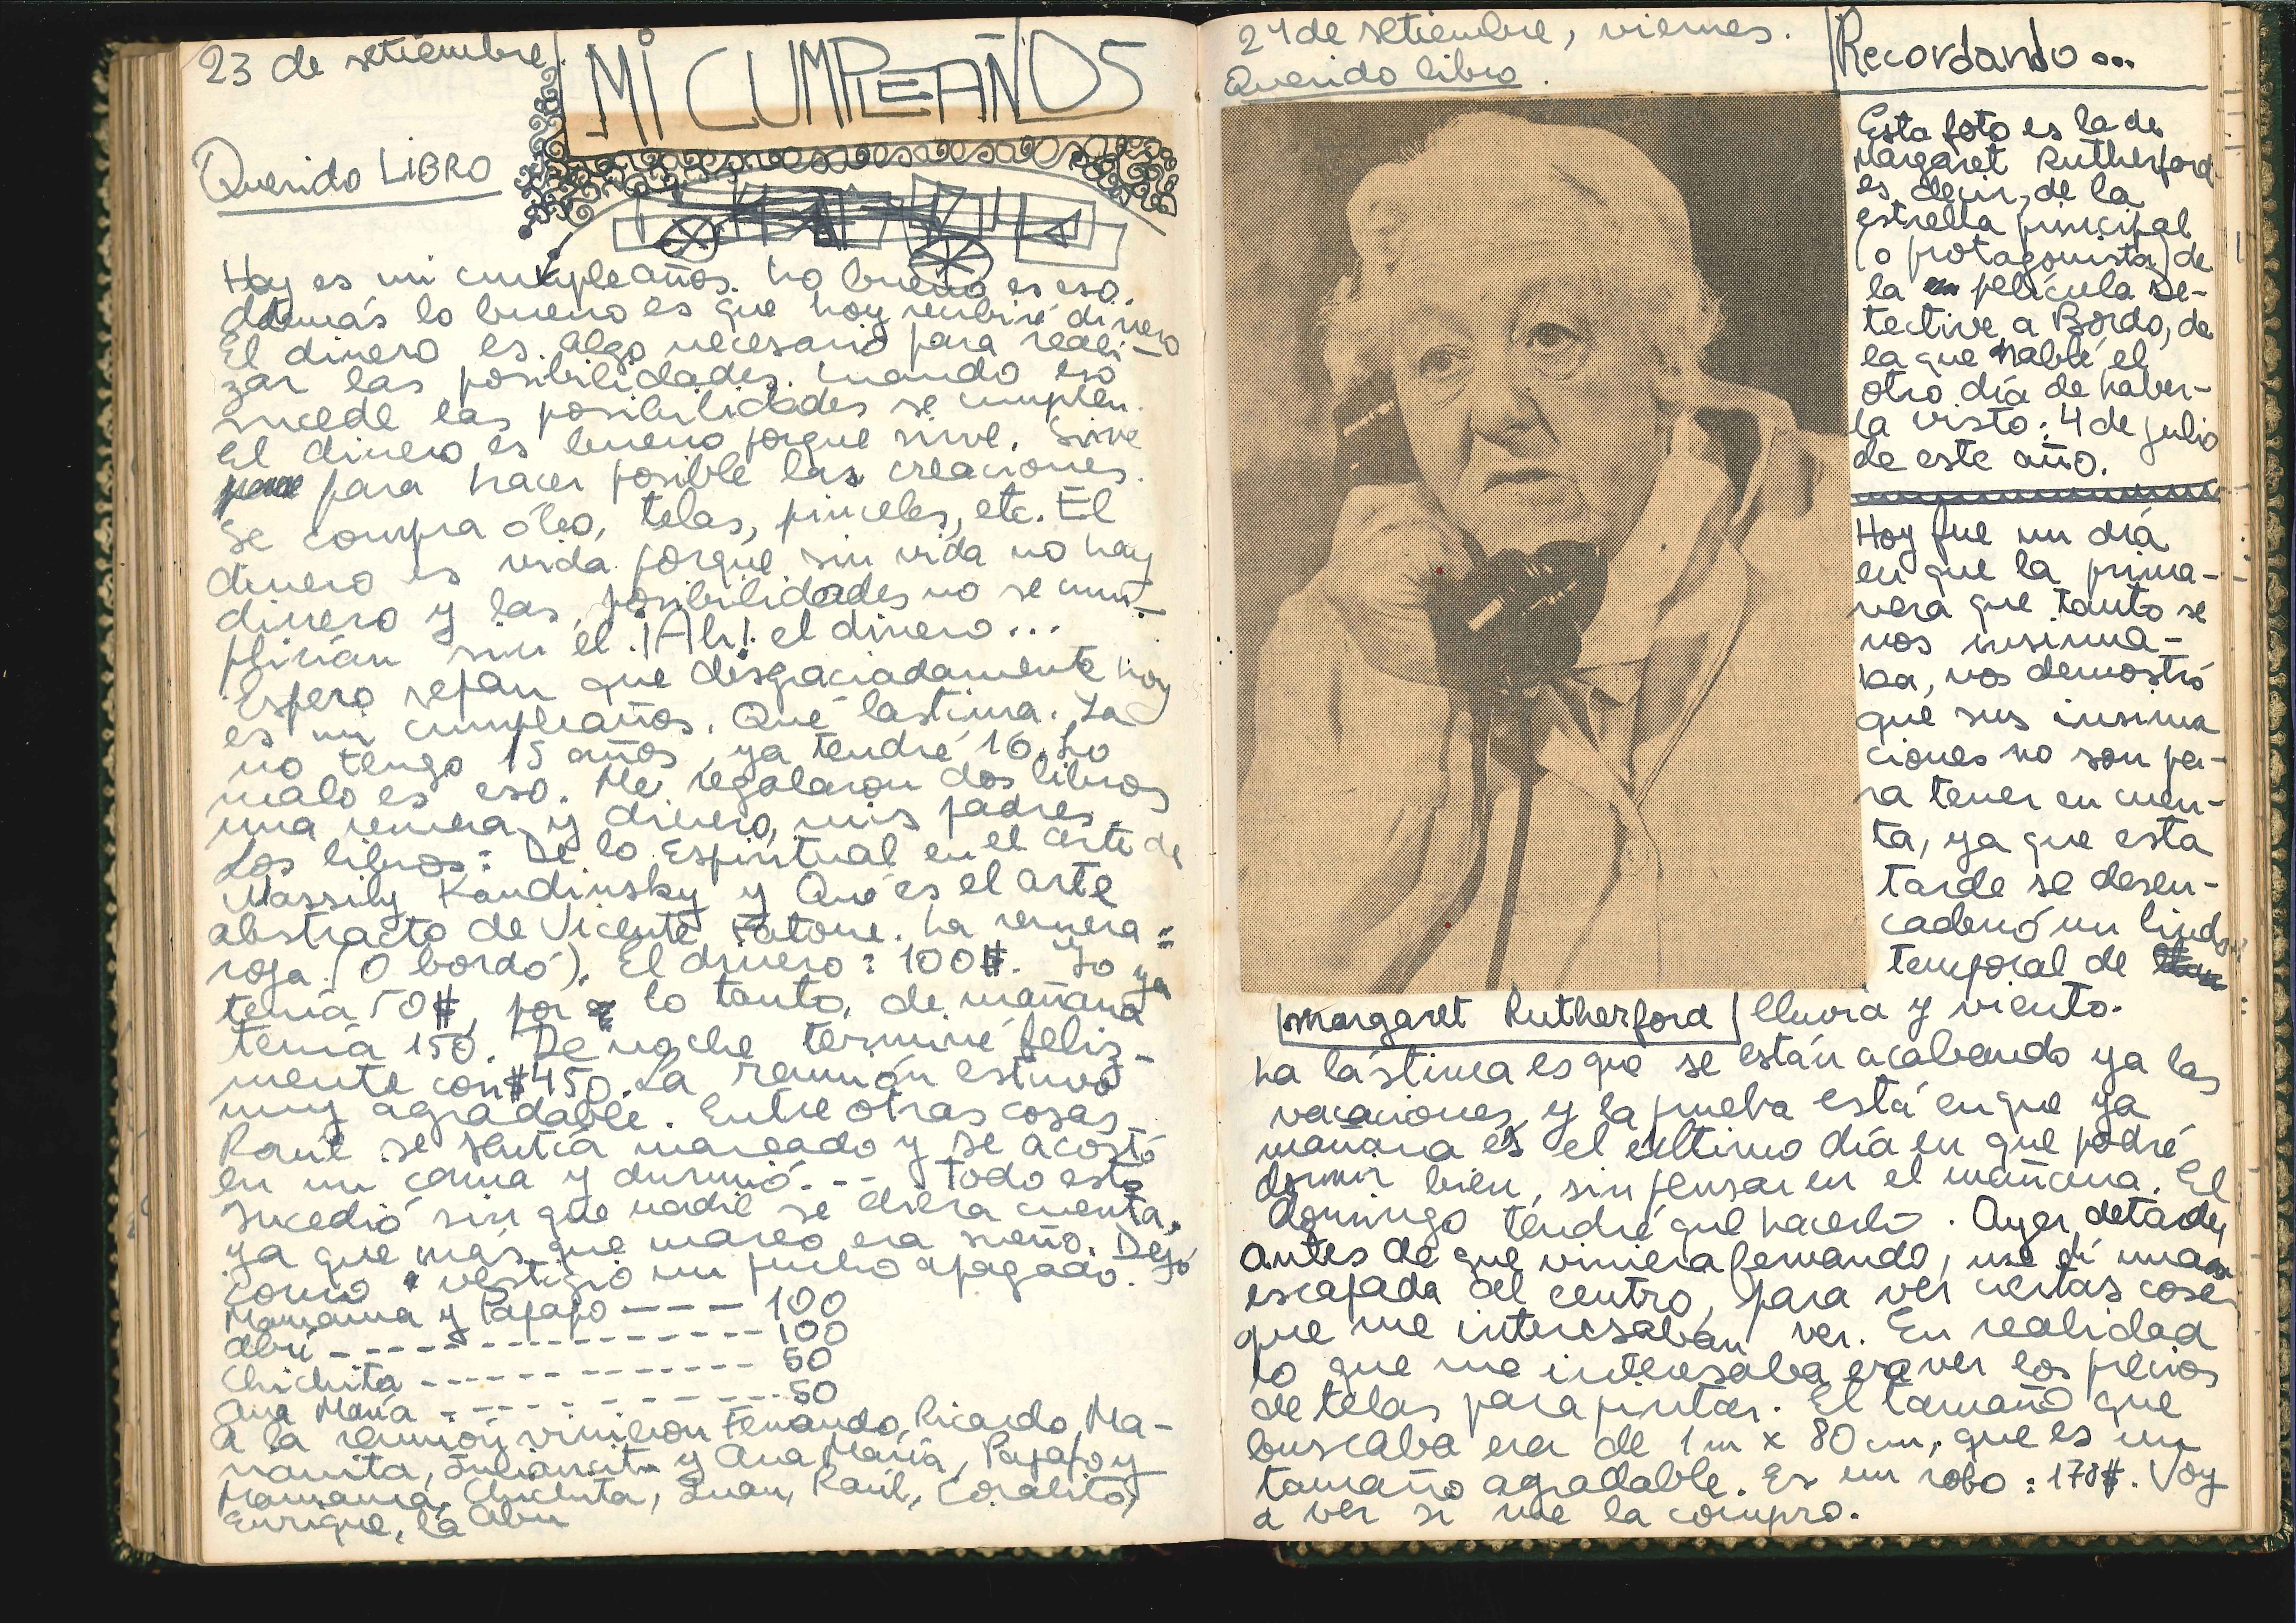 23 de setiembre
MI CUMPLEAÑOS
Querido LIBRO
Hoy es mi cumpleaños. Lo bueno es eso.
Además lo bueno es que hoy recibiré dinero
El dinero es algo necesario para reali-
zar las posibilidades. Cuando eso
sucede las posibilidades se cumplen.
El dinero es bueno porque sirve. Sirve
para hacer posible las creaciones.
Se compra óleo, telas, pinceles, etc. El
dinero es vida porque sin vida no hay
dinero y las posibilidades no se cum-
plirían sin él. ¡Ah! el dinero...
Espero sepan que desgraciadamente hoy
es mi cumpleaños. Qué lástima. Ya
no tengo 15 años, ya tendré 16. Lo
malo es eso. Me regalaron dos libros
una remera y dinero, mis padres.
Los libros: De lo Espiritual en el arte de
Wassily Kandinsky y Qué es el arte
abstracto de Vicente Fatone. La remera =
roja (o bordó). El dinero: 100$. Yo ya
tenía 50$, por lo tanto, de mañana
tenía 150. De noche terminé feliz-
mente con $450. La reunión estuvo
muy agradable. Entre otras cosas
Raúl se sentía mareado y se acostó
en mi cama y durmió. --- Todo esto
sucedió sin que nadie se diera cuenta,
ya que más que mareo era sueño. Dejó
como vestigio un pucho apagado.
Mamama y Papapo ---- 100
Abu ---------------- 100
Chichita ------------- 50
Ana María ----------- 50
A la reunión vinieron Fernando, Ricardo, Ma-
rianita, Juliancito y Ana María, Papapo y
Mamama, Chichita, Juan, Raúl, Coralito,
Enrique, la Abu
24 de setiembre, viernes.
Querido libro.
Recordando...
Esta foto es la de
Margaret Rutherford
es decir, de la
estrella principal
(o protagonista) de
la película De-
tective a Bordo, de
la que hablé el
otro día de haber-
la visto: 4 de julio
de este año.
Hoy fue un día
en que la prima-
vera que tanto se
nos insinua-
ba, nos demostró
que sus insinua
ciones no son pa-
ra tener en cuen-
ta, ya que esta
tarde se desen-
cadenó un lindo
temporal de
Margaret Rutherford lluvia y viento.
La lástima es que se están acabando ya las
vacaciones, y la prueba está en que ya
mañana es el último día en que podré
dormir bien, sin pensar en el mañana. El
domingo tendré que hacerlo. Ayer, de tarde,
antes de que viniera Fernando, me dí una
escapada al centro, para ver ciertas cosas
que me interesaban ver. En realidad
lo que me interesaba era ver los precios
de telas para pintar. El tamaño que
buscaba era de 1m x 80cm, que es un
tamaño agradable. Es un robo: 178$. Voy
a ver si me la compro.